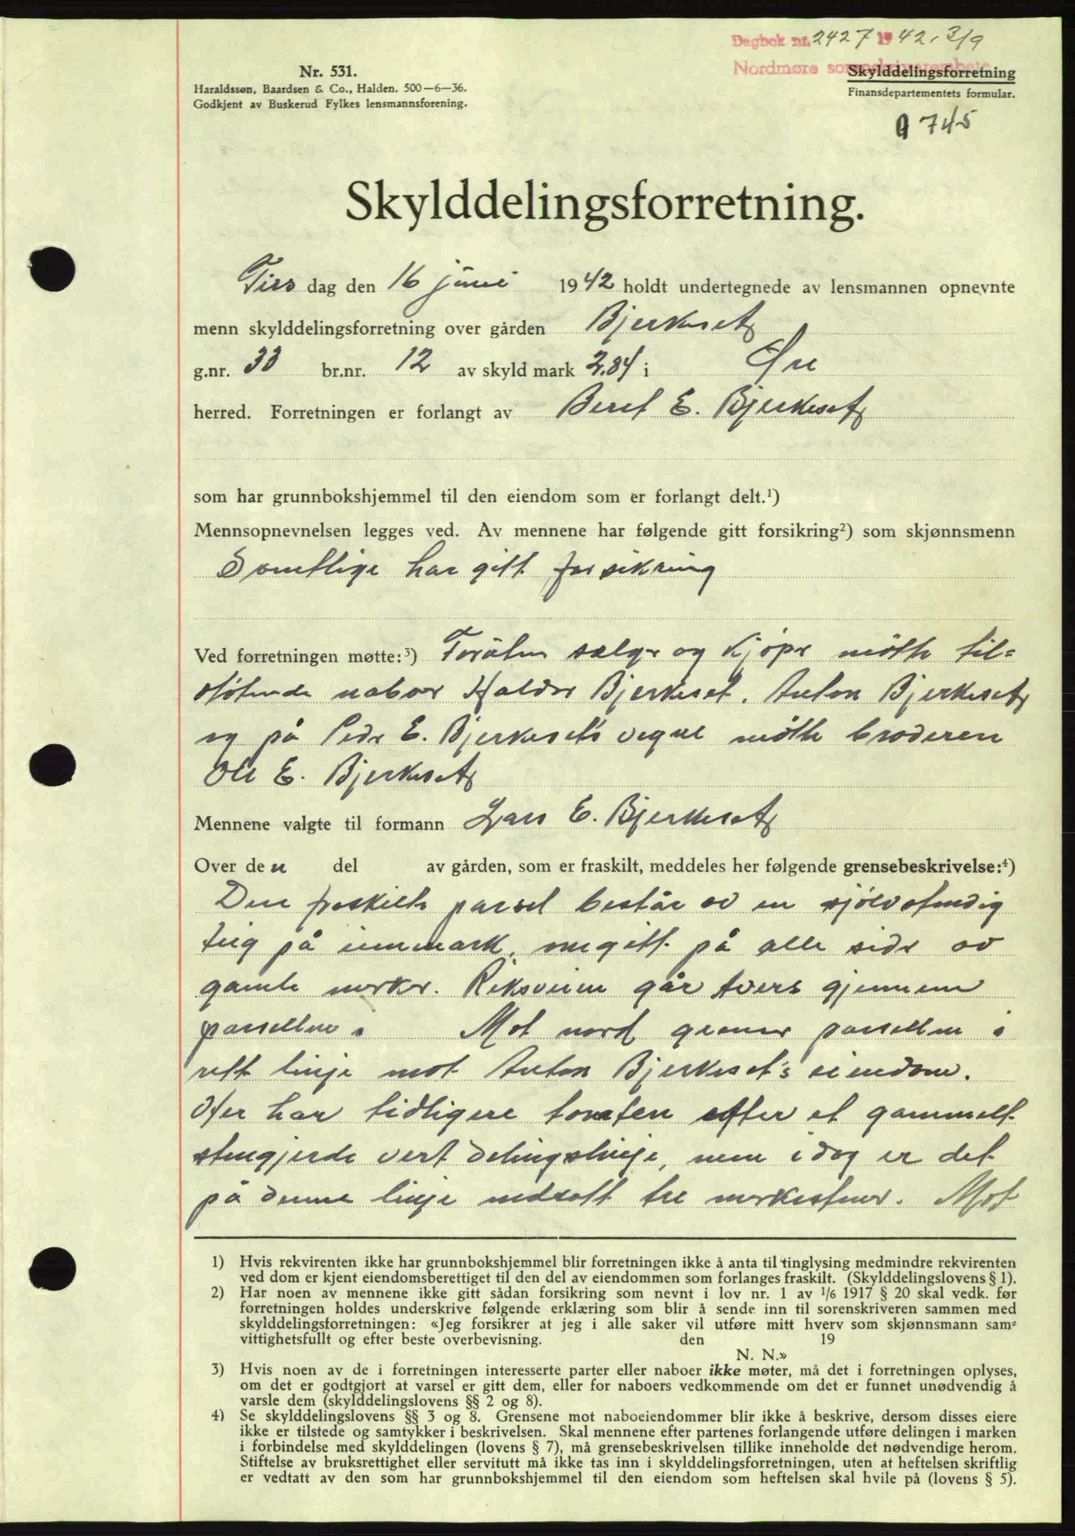 Dagbok nr. 2427 1942, 3/9
Nordmøre sorenskriverembete
Nr. 531.
Haraldssøn, Baardsen & Co., Halden. 500—6—36.
Godkjent av Buskerud Fylkes lensmannsforening.
Skylddelingsforretning
Finansdepartementets formular.
A 745
Skylddelingsforretning.
Tirs dag den 16 juni 1942 holdt undertegnede av lensmannen opnevnte
menn skylddelingsforretning over gården Bjerkeset
g.nr. 33 br.nr. 12 av skyld mark 2.84 i Øre
herred. Forretningen er forlangt av Beret E. Bjerkeset
som har grunnbokshjemmel til den eiendom som er forlangt delt.¹)
Mennsopnevnelsen legges ved. Av mennene har følgende gitt forsikring²) som skjønnsmenn
Samtlige har gitt forsikring
Ved forretningen møtte:³) Foruten selger og kjøper møtte til=
støtende naboer Haldor Bjerkeset, Anton Bjerkeset
og på Peder E. Bjerkeset's vegne møtte broderen
Ole E. Bjerkeset
Mennene valgte til formann Lars E. Bjerkeset
Over den del av gården, som er fraskilt, meddeles her følgende grensebeskrivelse:⁴)
Den fraskilte parsel består av en sjølvstendig
teig på innmark, omgitt på alle sider av
gamle merker. Riksveien går tvers gjennem
parsellen. Mot nord grenser parsellen i
rett linje mot Anton Bjerkeset's eiendom.
Her har tidligere tomten efter et gammelt
stengjerde vert delingslinje, men idag er det
på denne linje nedsatt tre merkestener. Mot
1) Hvis rekvirenten ikke har grunnbokshjemmel blir forretningen ikke å anta til tinglysing medmindre rekvirenten
ved dom er kjent eiendomsberettiget til den del av eiendommen som forlanges fraskilt. (Skylddelingslovens § 1).
2) Har noen av mennene ikke gitt sådan forsikring som nevnt i lov nr. 1 av 1/6 1917 § 20 skal vedk. før
forretningen holdes underskrive følgende erklæring som blir å sende inn til sorenskriveren sammen med
skylddelingsforretningen: «Jeg forsikrer at jeg i alle saker vil utføre mitt hverv som skjønnsmann sam=
vittighetsfullt og efter beste overbevisning. den 19
N. N.»
3) Hvis noen av de i forretningen interesserte parter eller naboer ikke møter, må det i forretningen oplyses,
om det er godtgjort at varsel er gitt dem, eller for naboers vedkommende om det er funnet unødvendig å
varsle dem (skylddelingslovens §§ 2 og 8).
4) Se skylddelingslovens §§ 3 og 8. Grensene mot naboeiendommer blir ikke å beskrive, dersom disses eiere
ikke er tilstede og samtykker i beskrivelsen. Skal mennene efter partenes forlangende utføre delingen i marken
i forbindelse med skylddelingen (lovens § 7), må grensebeskrivelsen tillike inneholde det nødvendige herom.
Stiftelse av bruksrettighet eller servitutt må ikke tas inn i skylddelingsforretningen, uten at heftelsen skriftlig
er vedtatt av den som har grunnbokshjemmel til den eiendom som heftelsen skal hvile på (lovens § 5).